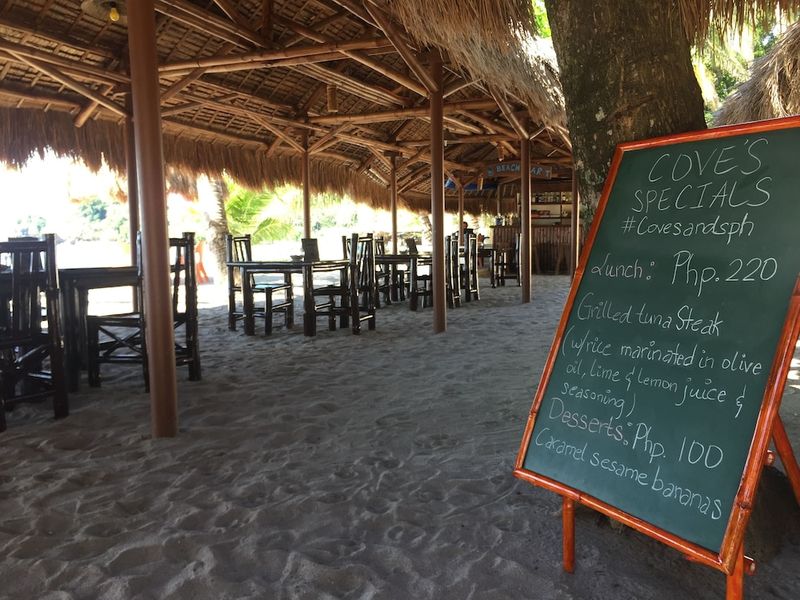 BEACH BAR
COVE'S
SPECIALS
#Covesandsph
Lunch: Php. 220
Grilled tuna Steak
(w/rice marinated in olive
oil, lime & lemon juice &
seasoning)
Desserts: Php. 100
Caramel sesame bananas